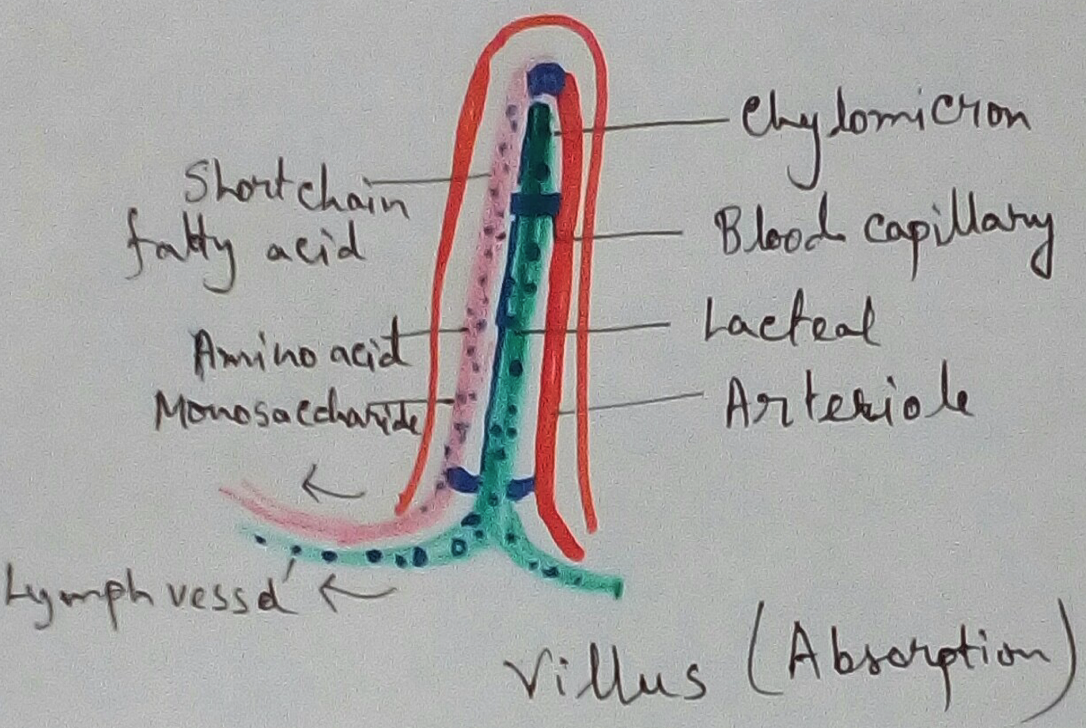 Chylomicron
Short chain
fatty acid
Blood capillary
Lacteal
Amino acid
Monosaccharide
Arteriole
Lymph vessel
Villus (Absorption)